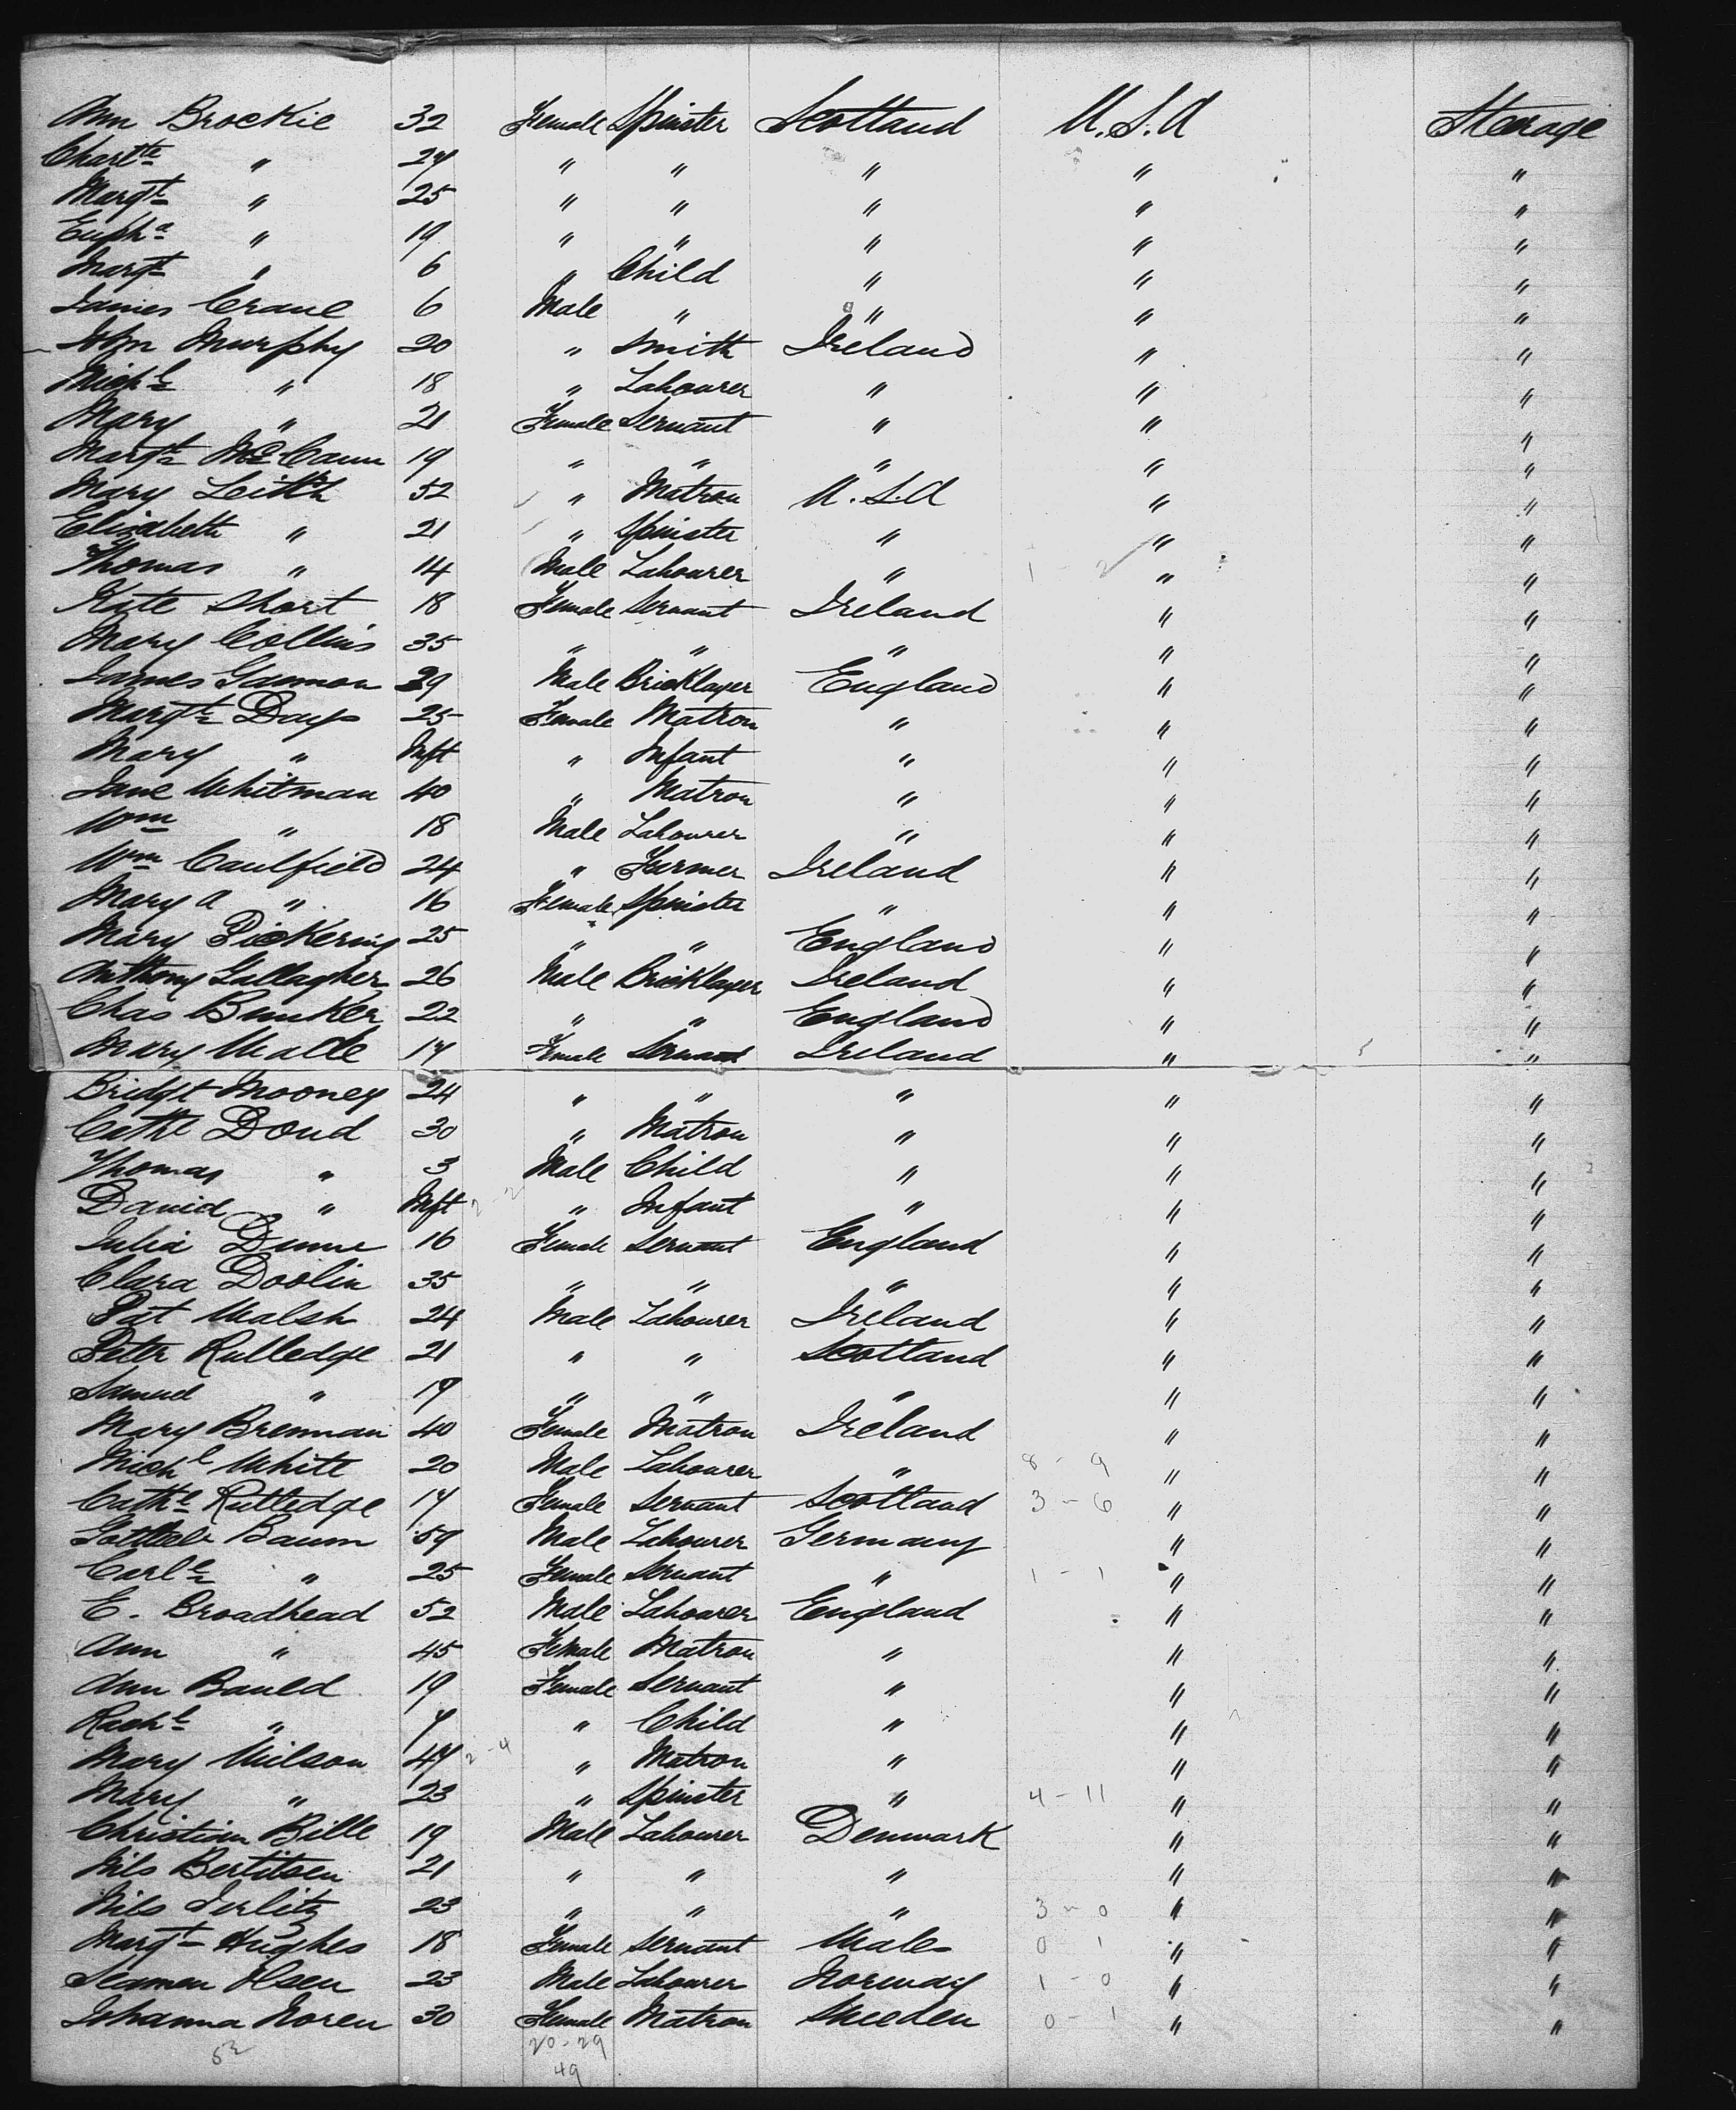 Ann Brockie 32 Female Spinster Scotland U.S.A Steerage
Charltte " 24 " " " " "
Margt " 25 " " " " "
Eupha " 19 " " " " "
Margt " 6 " Child " " "
James Crane 6 Male " " " "
John Murphy 20 " Smith Ireland " "
Michl " 18 " Labourer " " "
Mary " 21 Female Servant " " "
Margt McCann 19 " " " " "
Mary Leitch 52 " Matron U.S.A " "
Elizabeth " 21 " Spinster " " "
Thomas " 14 Male Labourer " 1 - 2 " "
Kate Short 18 Female Servant Ireland " "
Mary Collins 35 " " " " "
James Gammon 29 Male Bricklayer England " "
Margt Day 25 Female Matron " " "
Mary " Inft " Infant " " "
Jane Whitman 40 " Matron " " "
Wm " 18 Male Labourer " " "
Wm Caulfield 24 " Farmer Ireland " "
Mary A " 16 Female Spinster " " "
Mary Pickering 25 " " England " "
Anthony Gallagher 26 Male Bricklayer Ireland " "
Chas Bunker 22 " " England " "
Mary Walle 17 Female Servant Ireland " "
Bridgt Mooney 24 " " " " "
Cathe Doud 30 " Matron " " "
Thomas " 3 Male Child " " "
David " Inft 2 - 2 " Infant " " "
Julia Dunne 16 Female Servant England " "
Clara Doolin 35 " " " " "
Pat Walsh 24 Male Labourer Ireland " "
Peter Rutledge 21 " " Scotland " "
Samuel " 19 " " " " "
Mary Brennan 40 Female Matron Ireland " "
Michl White 20 Male Labourer " 8 - 9 " "
Cathe Rutledge 17 Female Servant Scotland 3 - 6 " "
Gottleib Baum 59 Male Labourer Germany " "
Carle " 25 Female Servant " 1 - 1 " "
E. Broadhead 52 Male Labourer England " "
Ann " 45 Female Matron " " "
Ann Bauld 19 Female Servant " " "
Rachl " 7 " Child " " "
Mary Wilson 47 2 - 4 " Matron " " "
Mary " 23 " Spinster " 4 - 11 " "
Christian Bille 19 Male Labourer Denmark " "
Nils Bertilsen 21 " " " " "
Nils 23 " " " 3 - 0 " "
Margt Hughes 18 Female Servant Wales 0 1 " "
Olsen 23 Male Labourer Norway 1 - 0 " "
Johanna Noren 30 Female Matron Sweden 0 - 1 " "
52 20 - 29
49